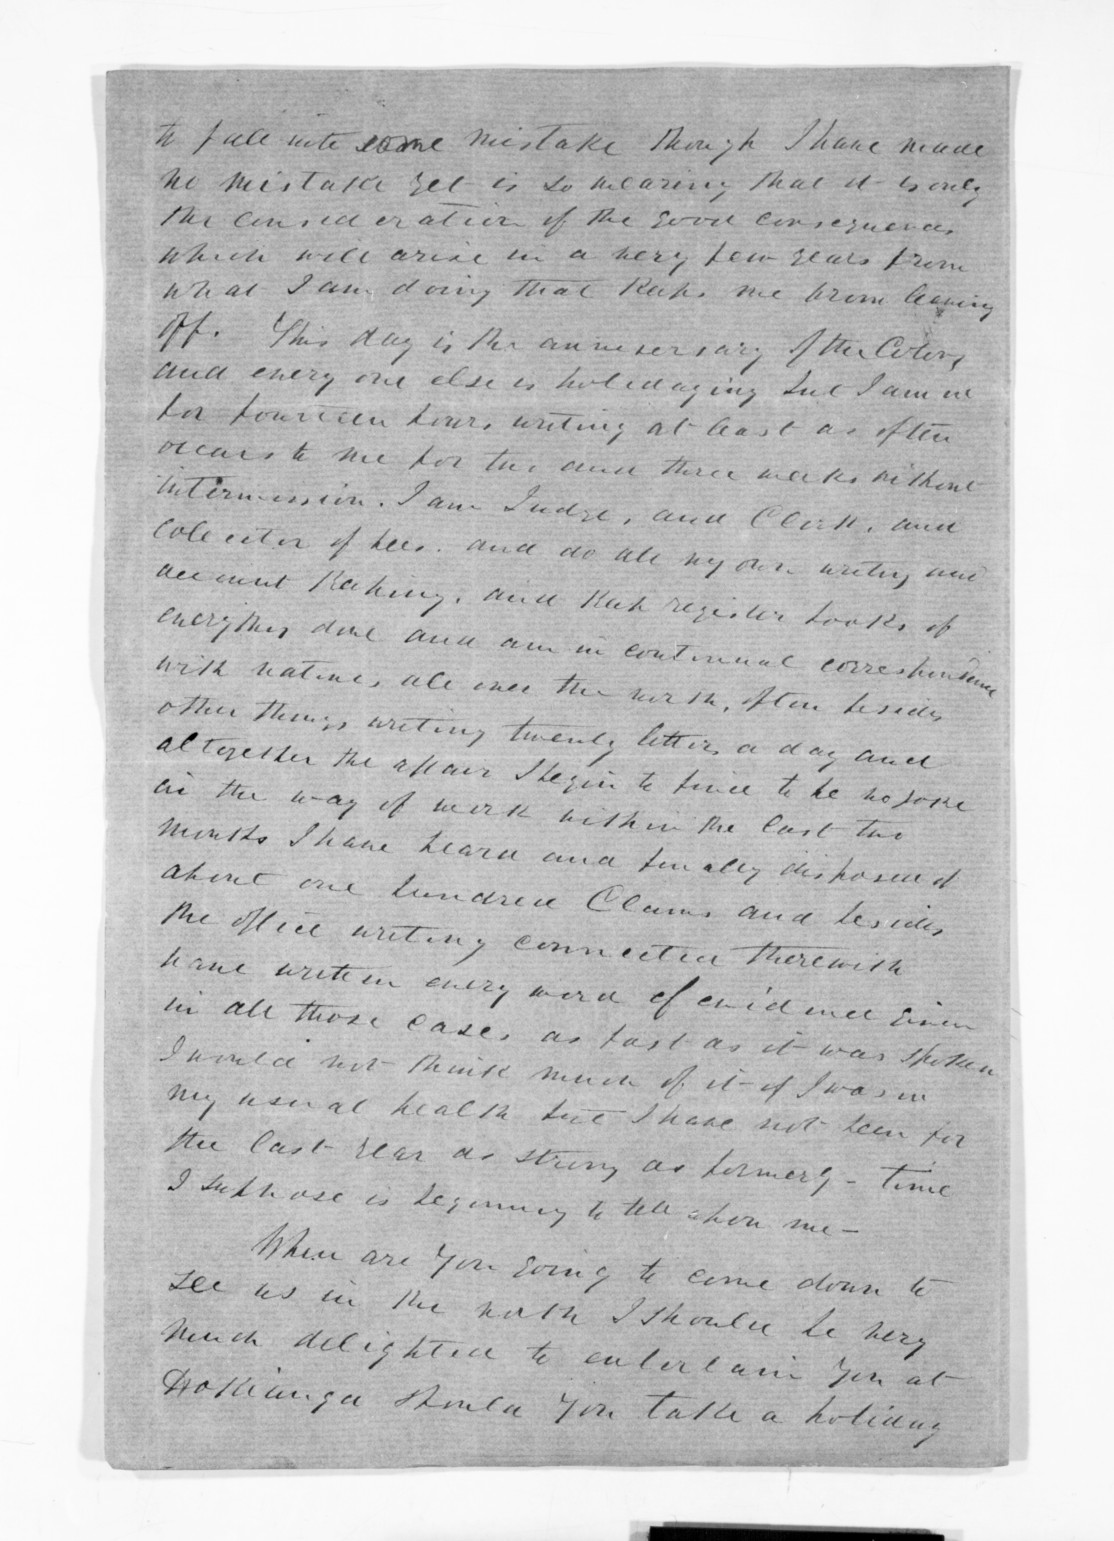 to fall into some mistake though I have made
no mistake yet is so wearing that it is only
the consideration of the good consequences
which will arise in a very few years from
what I am doing that keeps me from leaving
off. This day is the anniversary of the Colony
and every one else is holidaying but I am in
for fourteen hours writing at least as often
occurs to me for two and three weeks without
intermission. I am Judge, and Clerk, and
Collector of fees. and do all my own writing and
account keeping, and keep register books of
everything done and am in continual correspondence
with natives all over the north, often besides
other things writing twenty letters a day and
altogether the affair I begin to find to be no joke
in the way of work within the last two
months I have heard and finally disposed of
about one hundred Claims and besides
the office writing connected therewith
have written every word of evidence given
in all those cases as fast as it was spoken
I would not think much of it if I was in
my usual health but I have not been for
the last year as strong as formerly - time
I suppose is beginning to tell upon me -
When are you going to come down to
see us in the north I should be very
much delighted to entertain you at
Hokianga should you take a holiday